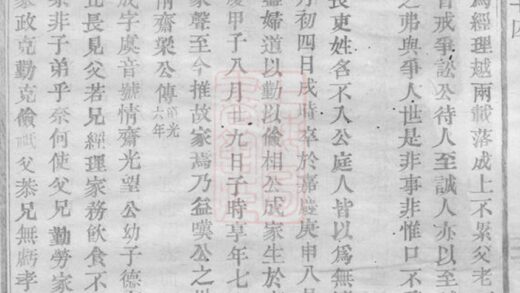 為經理越兩載落成上不累父老
皆戒爭訟公待人至誠人亦以至
之弗與爭人世是非事非惟口不
長吏姓名不入公庭人皆以為無
月初四日戌時卒於嘉慶庚申八
益婦道以勤以儉相公成家生於
慶甲子八月九日子時享年七
家聲至今推故家焉乃益嘆公之
情齋榮公傳 道光六年
成字虞音號情齋光望公幼子德
比長見父若兄經理家務飲食不
非子弟乎奈何使父兄勤勞家
家政克勤克儉祗父恭兄無虧孝